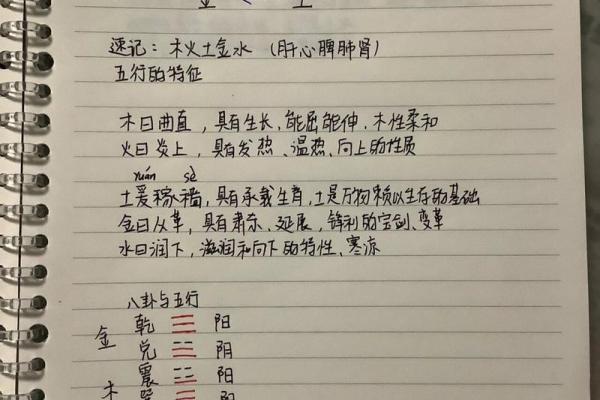 金 土
速记：木火土金水（肝心脾肺肾）
五行的特征
木曰曲直，具有生长、能屈能伸、木性柔和
火曰炎上，具有发热、温热、向上的性质
yuán sè
土爰稼穑，具有承载生育，土是万物赖以生存的基础
金曰从革，具有肃杀、延展，锋利的宝剑、变革
水曰润下，滋润和向下的特性、寒凉
八卦与五行
金 乾 ☰ 阳
兑 阴
震 阳
木